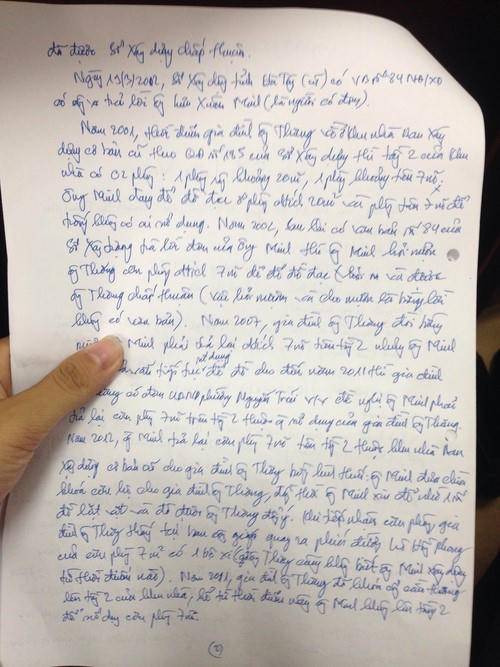 đã được Sở Xây dựng chấp thuận.
Ngày 19/3/2002, Sở Xây dựng tỉnh Hà Tây (cũ) có VB số 84 /XD
trả lời ông Xuân Minh (là người có đơn).
Năm 2001, thời điểm gia đình ông Thắng về ở khu nhà Ban Xây
dựng cơ bản cũ theo QĐ số 195 của Sở Xây dựng thì tầng 2 của khu
nhà có 02 phòng: 1 phòng khoảng 20m², 1 phòng khoảng trên 7m²,
Ông Minh đang để đồ đạc ở phòng diện tích 20m² và phòng trên 7m² để
trống không có ai sử dụng. Năm 2002, sau khi có văn bản số 84 của
Sở Xây dựng trả lời đơn của ông Minh thì ông Minh hỏi mượn
ông Thắng căn phòng diện tích 7m² đó để đồ đạc và được
ông Thắng chấp thuận (việc hỏi mượn và cho mượn là bằng lời
không có văn bản). Năm 2007, gia đình ông Thắng đòi bằng
Minh phải trả lại diện tích 7m² trên tầng 2 nhưng ông Minh
sử dụng
vẫn tiếp tục để đồ cho đến năm 2011 thì gia đình
có đơn UBND phường Nguyễn Trãi v/v đề nghị ông Minh phải
trả lại căn phòng 7m² trên tầng 2 thuộc sử dụng của gia đình ông Thắng.
Năm 2012, ông Minh trả lại căn phòng 7m² trên tầng 2 thuộc khu nhà Ban
Xây dựng cơ bản cũ cho gia đình ông Thắng bằng hình thức: ông Minh đưa chìa
khoá căn hộ cho gia đình ông Thắng, đồng thời ông Minh xin để nhờ 1 số
đồ lặt vặt và đã được ông Thắng đồng ý. Khi tiếp nhận căn phòng gia
đình ông Thắng thấy tại ban công giáp quay ra phía đường Lê Hồng Phong
của căn phòng 7m² có 1 bồn xí (ông Thắng cũng không biết ông Minh xây dựng
từ thời điểm nào). Năm 2011, gia đình ông Thắng đã khoá cửa cầu thang
lên tầng 2 của khu nhà, kể từ thời điểm này ông Minh không lên tầng 2
để sử dụng căn phòng 7m².
(2)